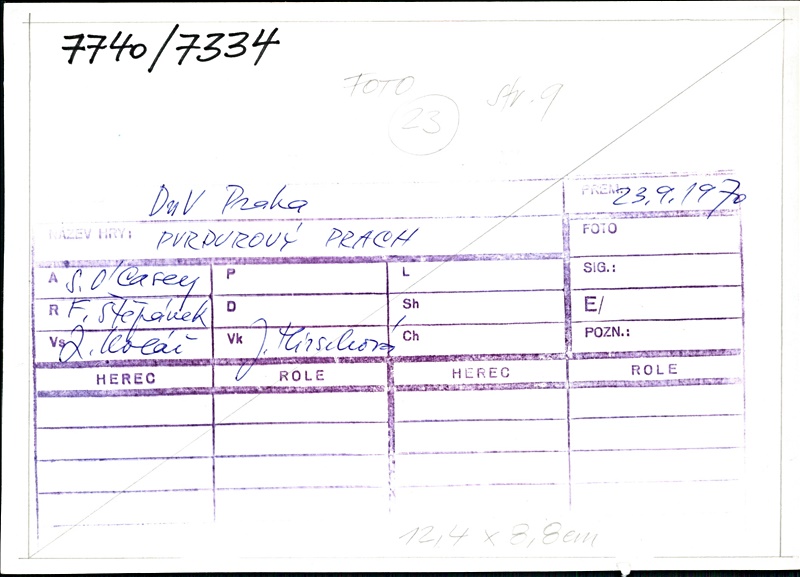 7740/7334
FOTO
23
str. 9
DnV Praha
PREM. 23.9.1970
NÁZEV HRY: PURPUROVÝ PRACH
FOTO
A S. O'Casey P L SIG.:
R F. Štěpánek D Sh E/
Vs Z. Kolář Vk J. Hirschová Ch POZN.:
HEREC ROLE HEREC ROLE
12,4 x 8,8cm